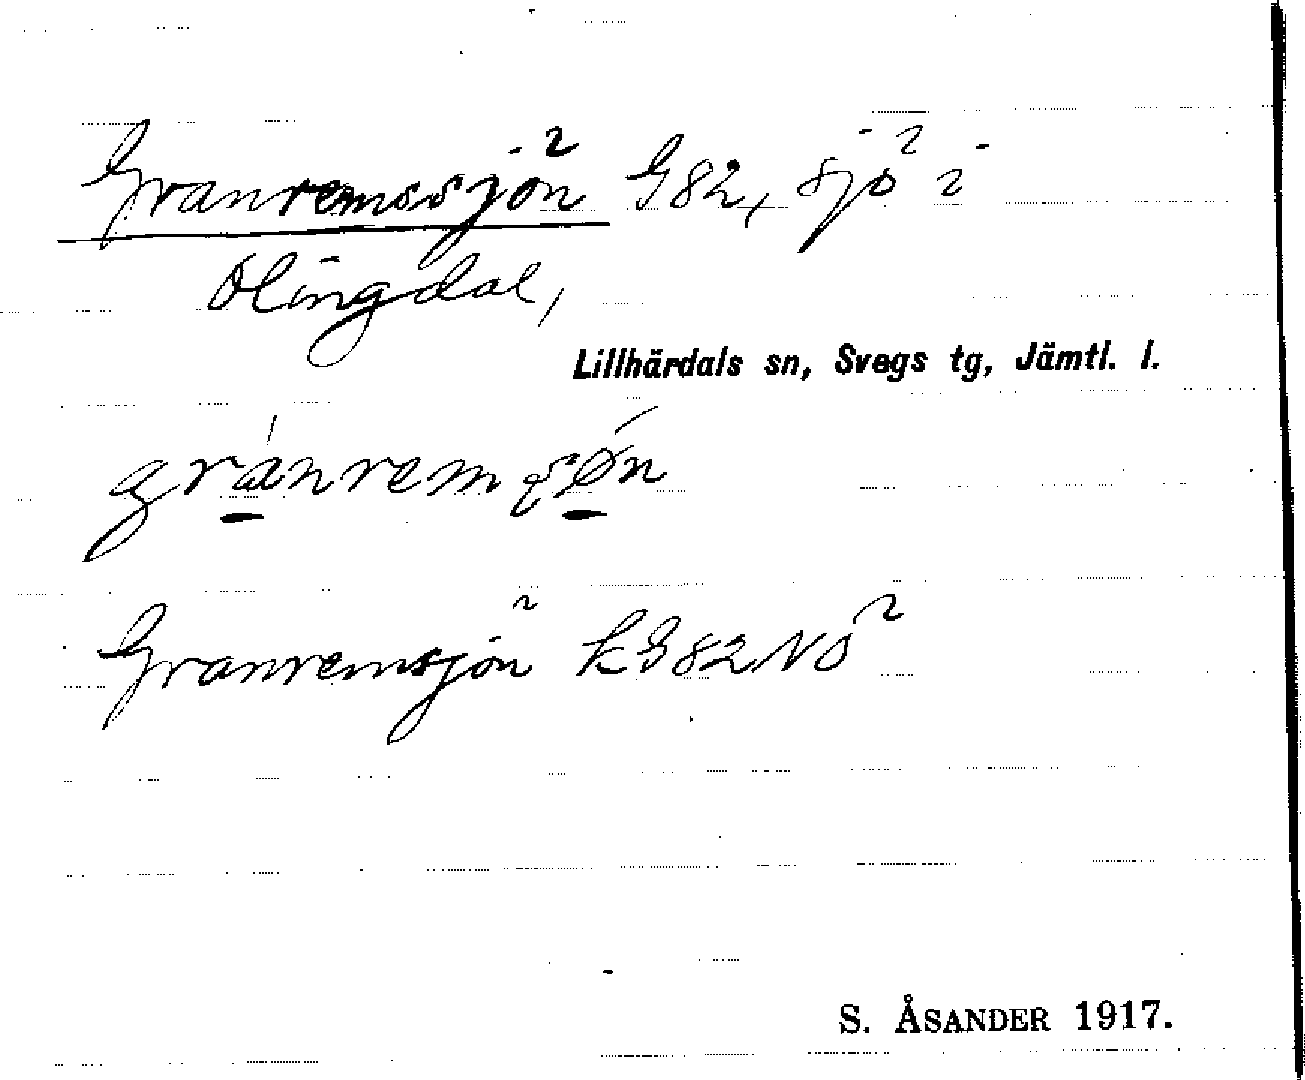 Granremssjön G82, sjö i
Olingdal,
Lillhärdals sn, Svegs tg, Jämtl. l.
Granremsjön kG82NÖ
S. ÅSANDER 1917.